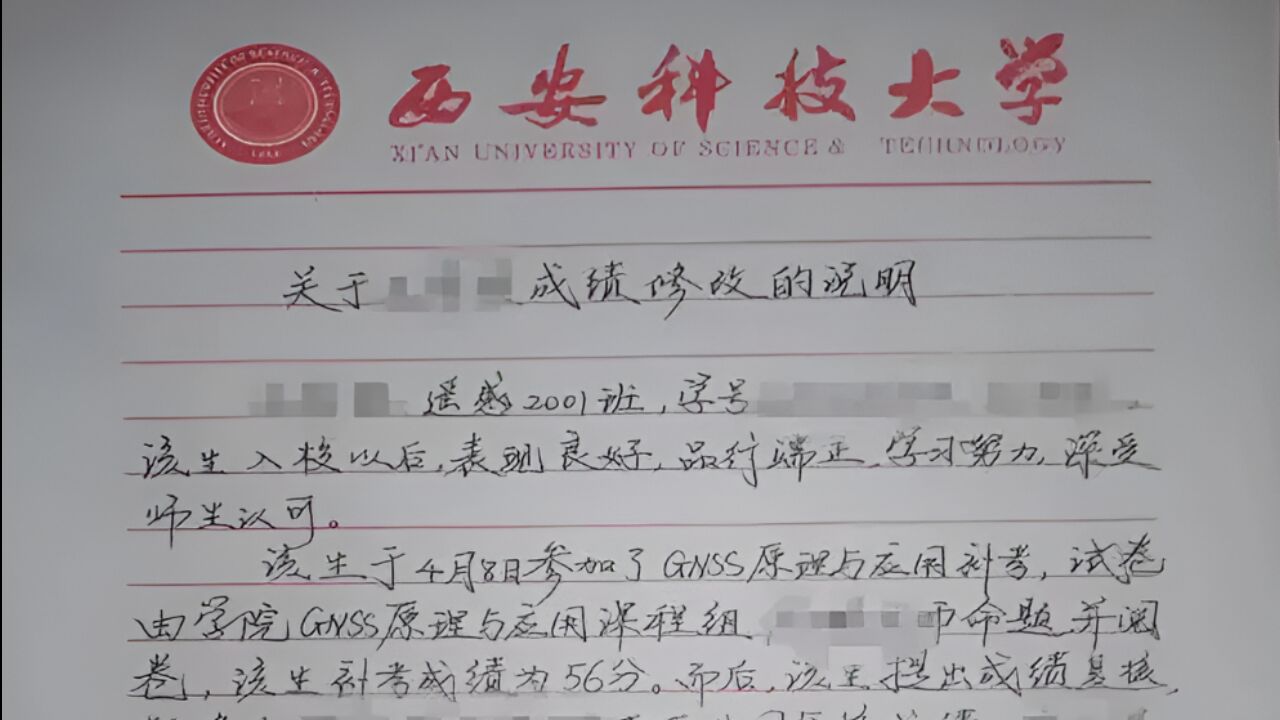 西安科技大学
XI'AN UNIVERSITY OF SCIENCE & TECHNOLOGY
关于 成绩修改的说明
遥感2001班,学号
该生入校以后,表现良好,品行端正,学习努力,深受
师生认可。
该生于4月8日参加了GNSS原理与应用补考,试卷
由学院GNSS原理与应用课程组 师命题并阅
卷,该生补考成绩为56分。而后,该生提出成绩复核,